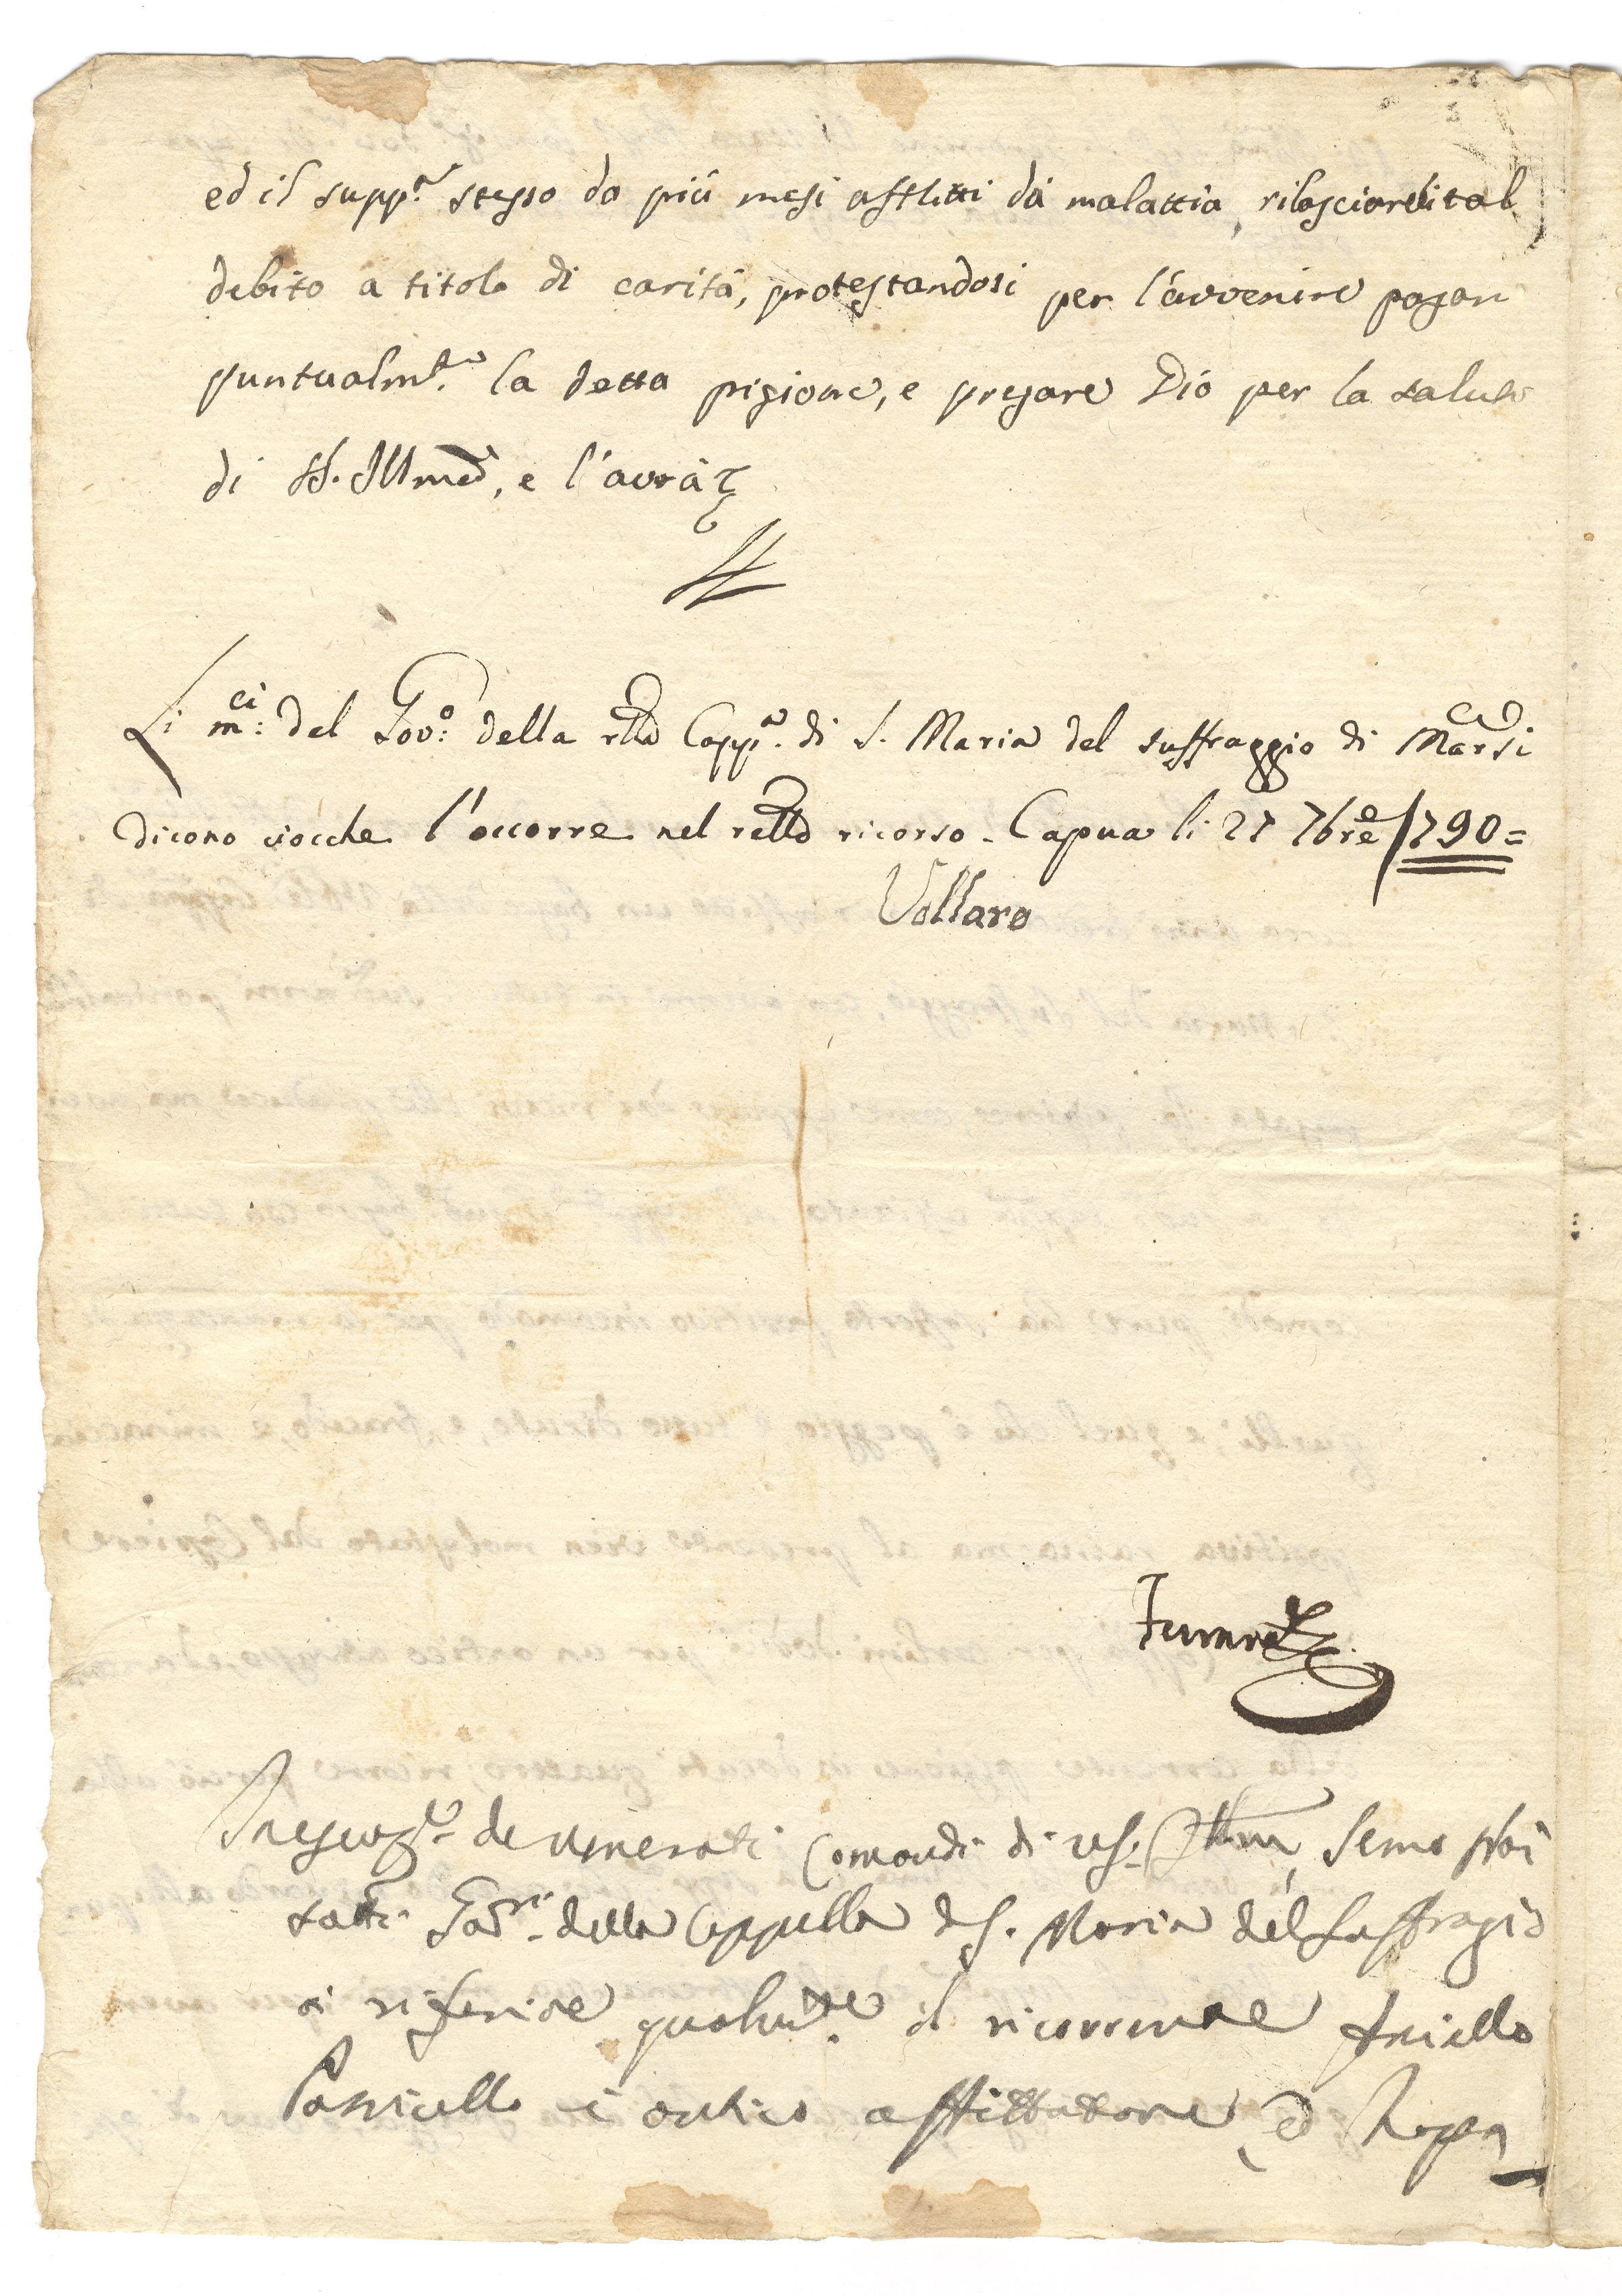 ed il supp.e stesso da più mesi afflitti da malattia, rilasciarli tal
debito a titolo di carità, protestandosi per l'avvenire pagare
puntualm.e la detta pigione, e pregare Dio per la salute
di VS. Illma, e l'avrà
Li m.ci del Gov.o della Capp.a di S. Maria del suffraggio di Marsi
dicono ciocche l'occorre nel ricorso. Capua li 27 7bre 1790=
Vollaro
de venerati Comandi di VS. Illma, semo Noi
della Cappella di S. Maria del Suffragio
si riferisce qualm.te il ricorrente Aniello
è antico affittatore, ed